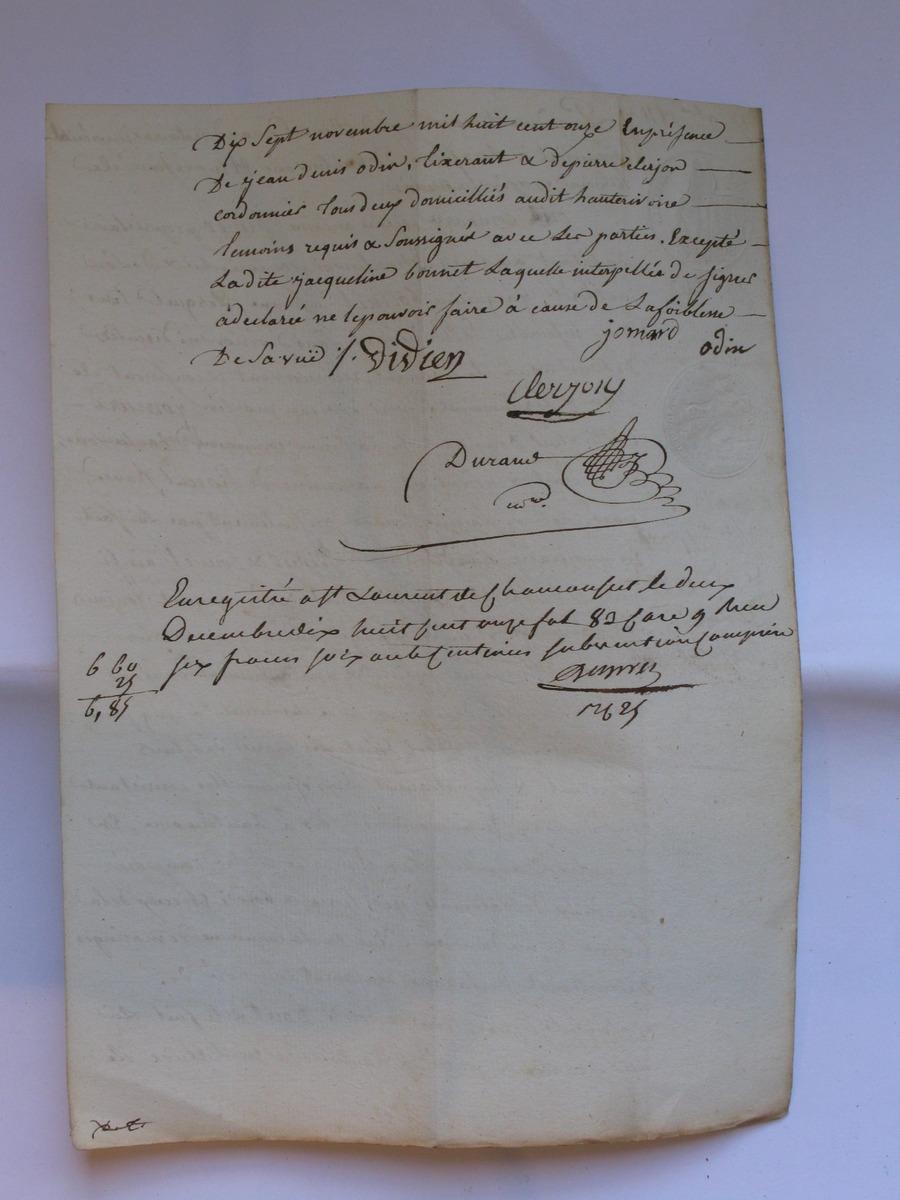 Dix Sept novembre mil huit cent onze En présence
De jean denis odin, tixerant & de pierre clerjon
cordonnier tous deux domiciliés audit hauterivoire
temoins requis & Soussignés avec Les parties. Excepté
Ladite jacqueline bonnet Laquelle interpellée de signer
à declarée ne le pouvoir faire à cause de La foiblesse
De Sa vuë ./. Didien jomard
odin
Clerjon
Durand
nore.
Enregistré a St Laurent de Chamousset le deux
Decembre dix huit cent onze fol 82 Case 9 Recu
six francs soixante Centimes subvention Comprise
6 60
25
6,85